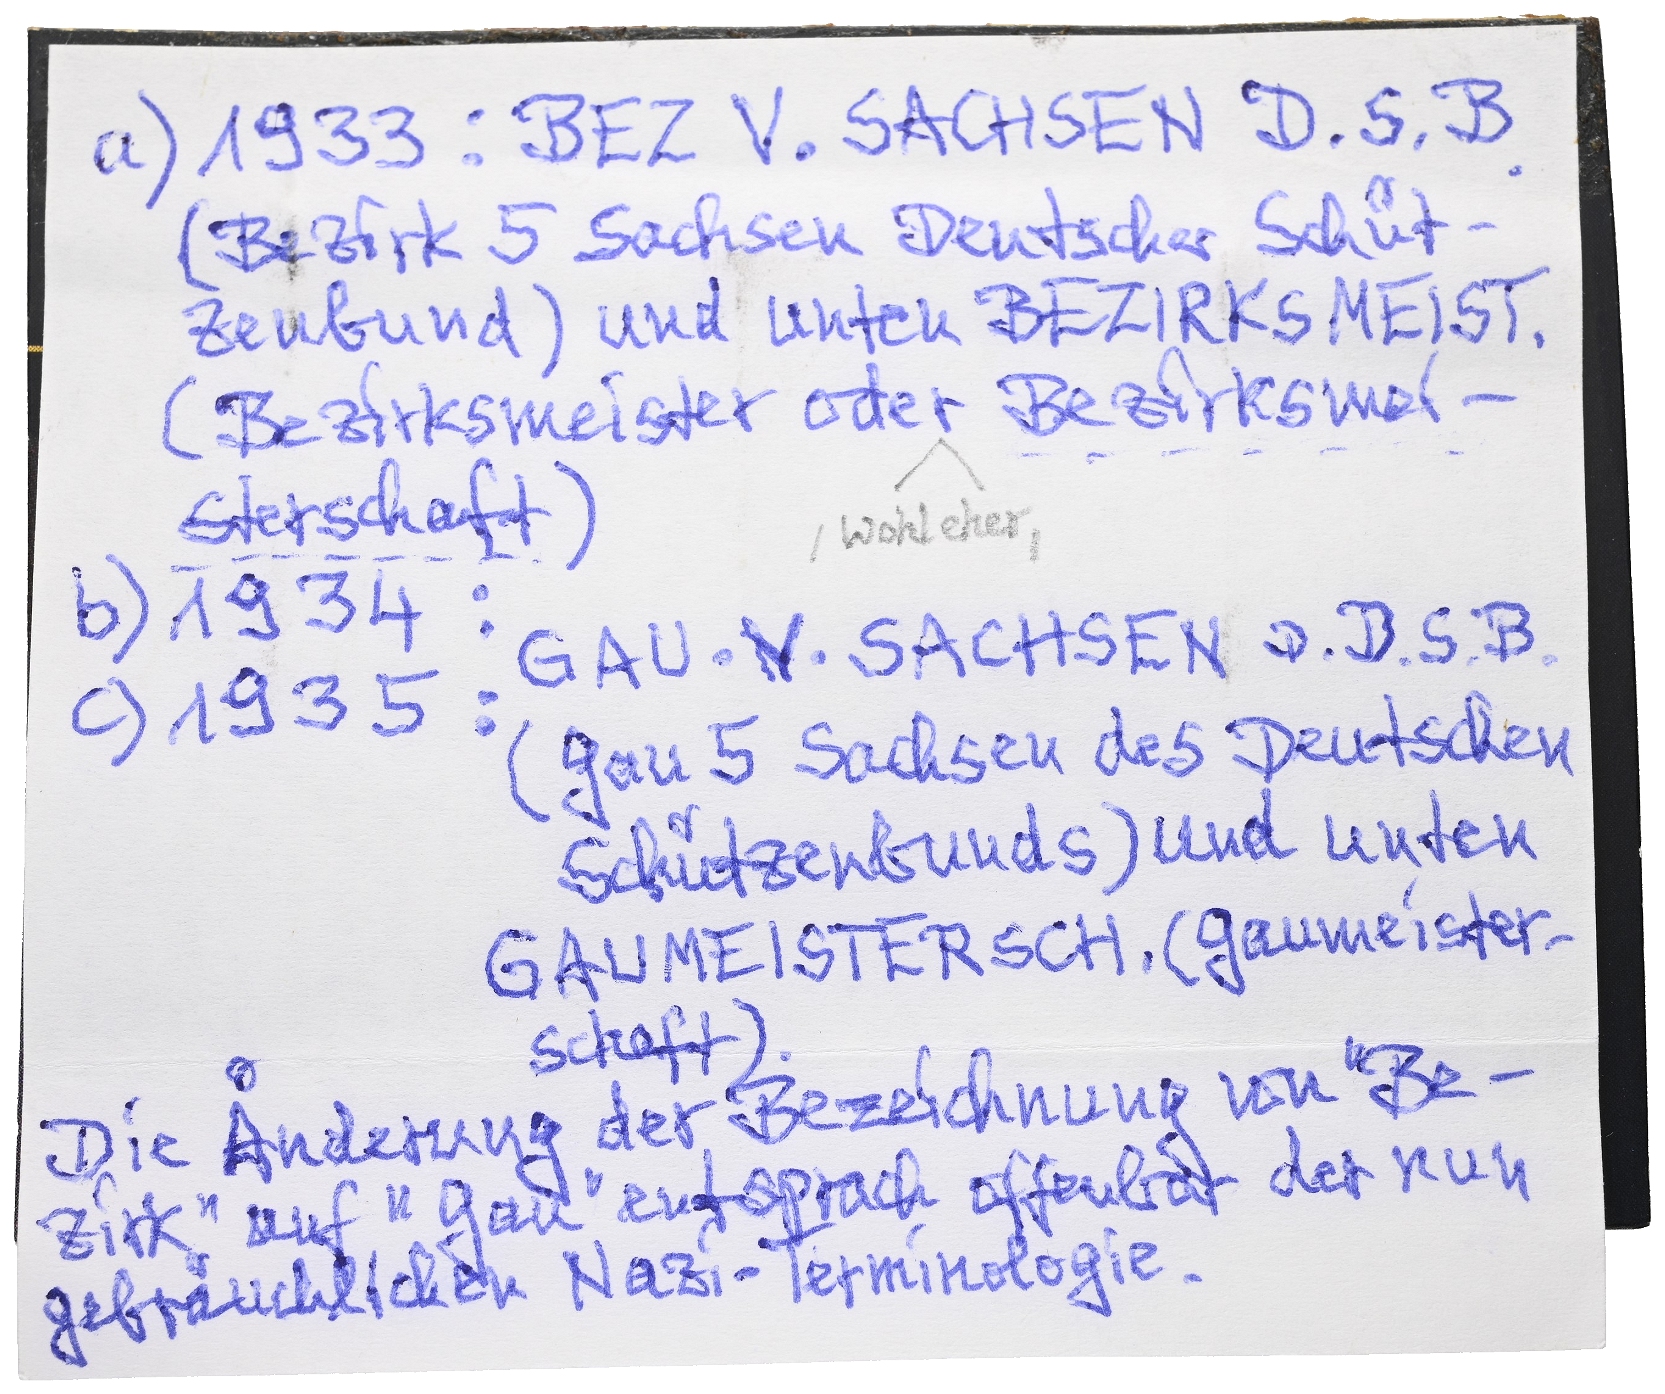 a) 1933 : BEZ V. SACHSEN D.S.B.
(Bezirk 5 Sachsen Deutscher Schüt-
zenbund) und unten BEZIRKSMEIST.
(Bezirksmeister oder Bezirksmei-
, wohl eher,
sterschaft)
b) 1934 :
GAU. V. SACHSEN D.D.S.B.
c) 1935 :
(Gau 5 Sachsen des Deutschen
Schützenbunds) und unten
GAUMEISTERSCH. (Gaumeister-
schaft).
Die Änderung der Bezeichnung von "Be-
zirk" auf "Gau" entsprach offenbar der nun
gebräuchlichen Nazi-Terminologie.